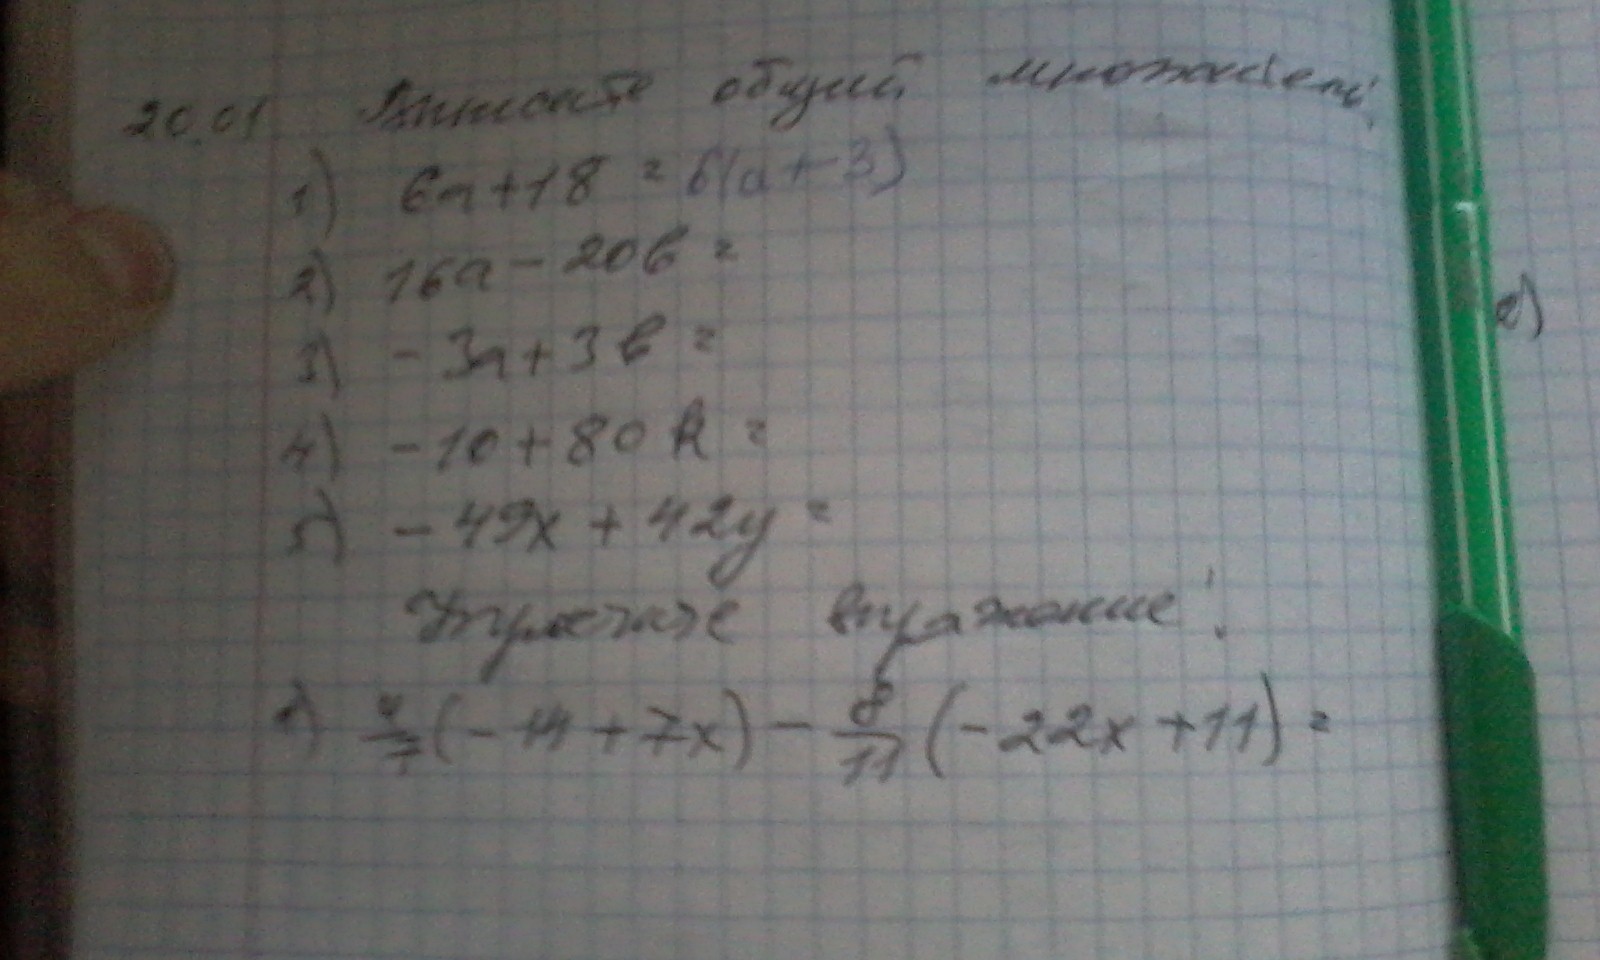 20.01 Выносите общий множитель:
1) 6a+18 = 6(a+3)
2) 16a - 20b =
3) -3a+3b =
4) -10+80k =
5) -49x + 42y =
Упростите выражение:
1) 4/7 (-14 + 7x) - 8/11 (-22x + 11) =
2)